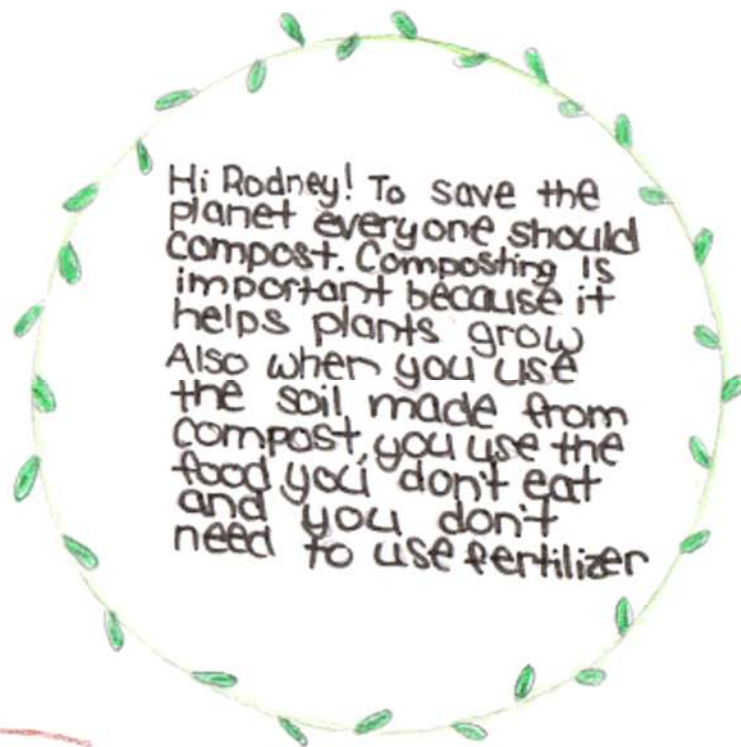 Hi Rodney! To save the
planet everyone should
compost. Composting is
important because it
helps plants grow
Also when you use
the soil made from
compost, you use the
food you don't eat
and you don't
need to use fertilizer